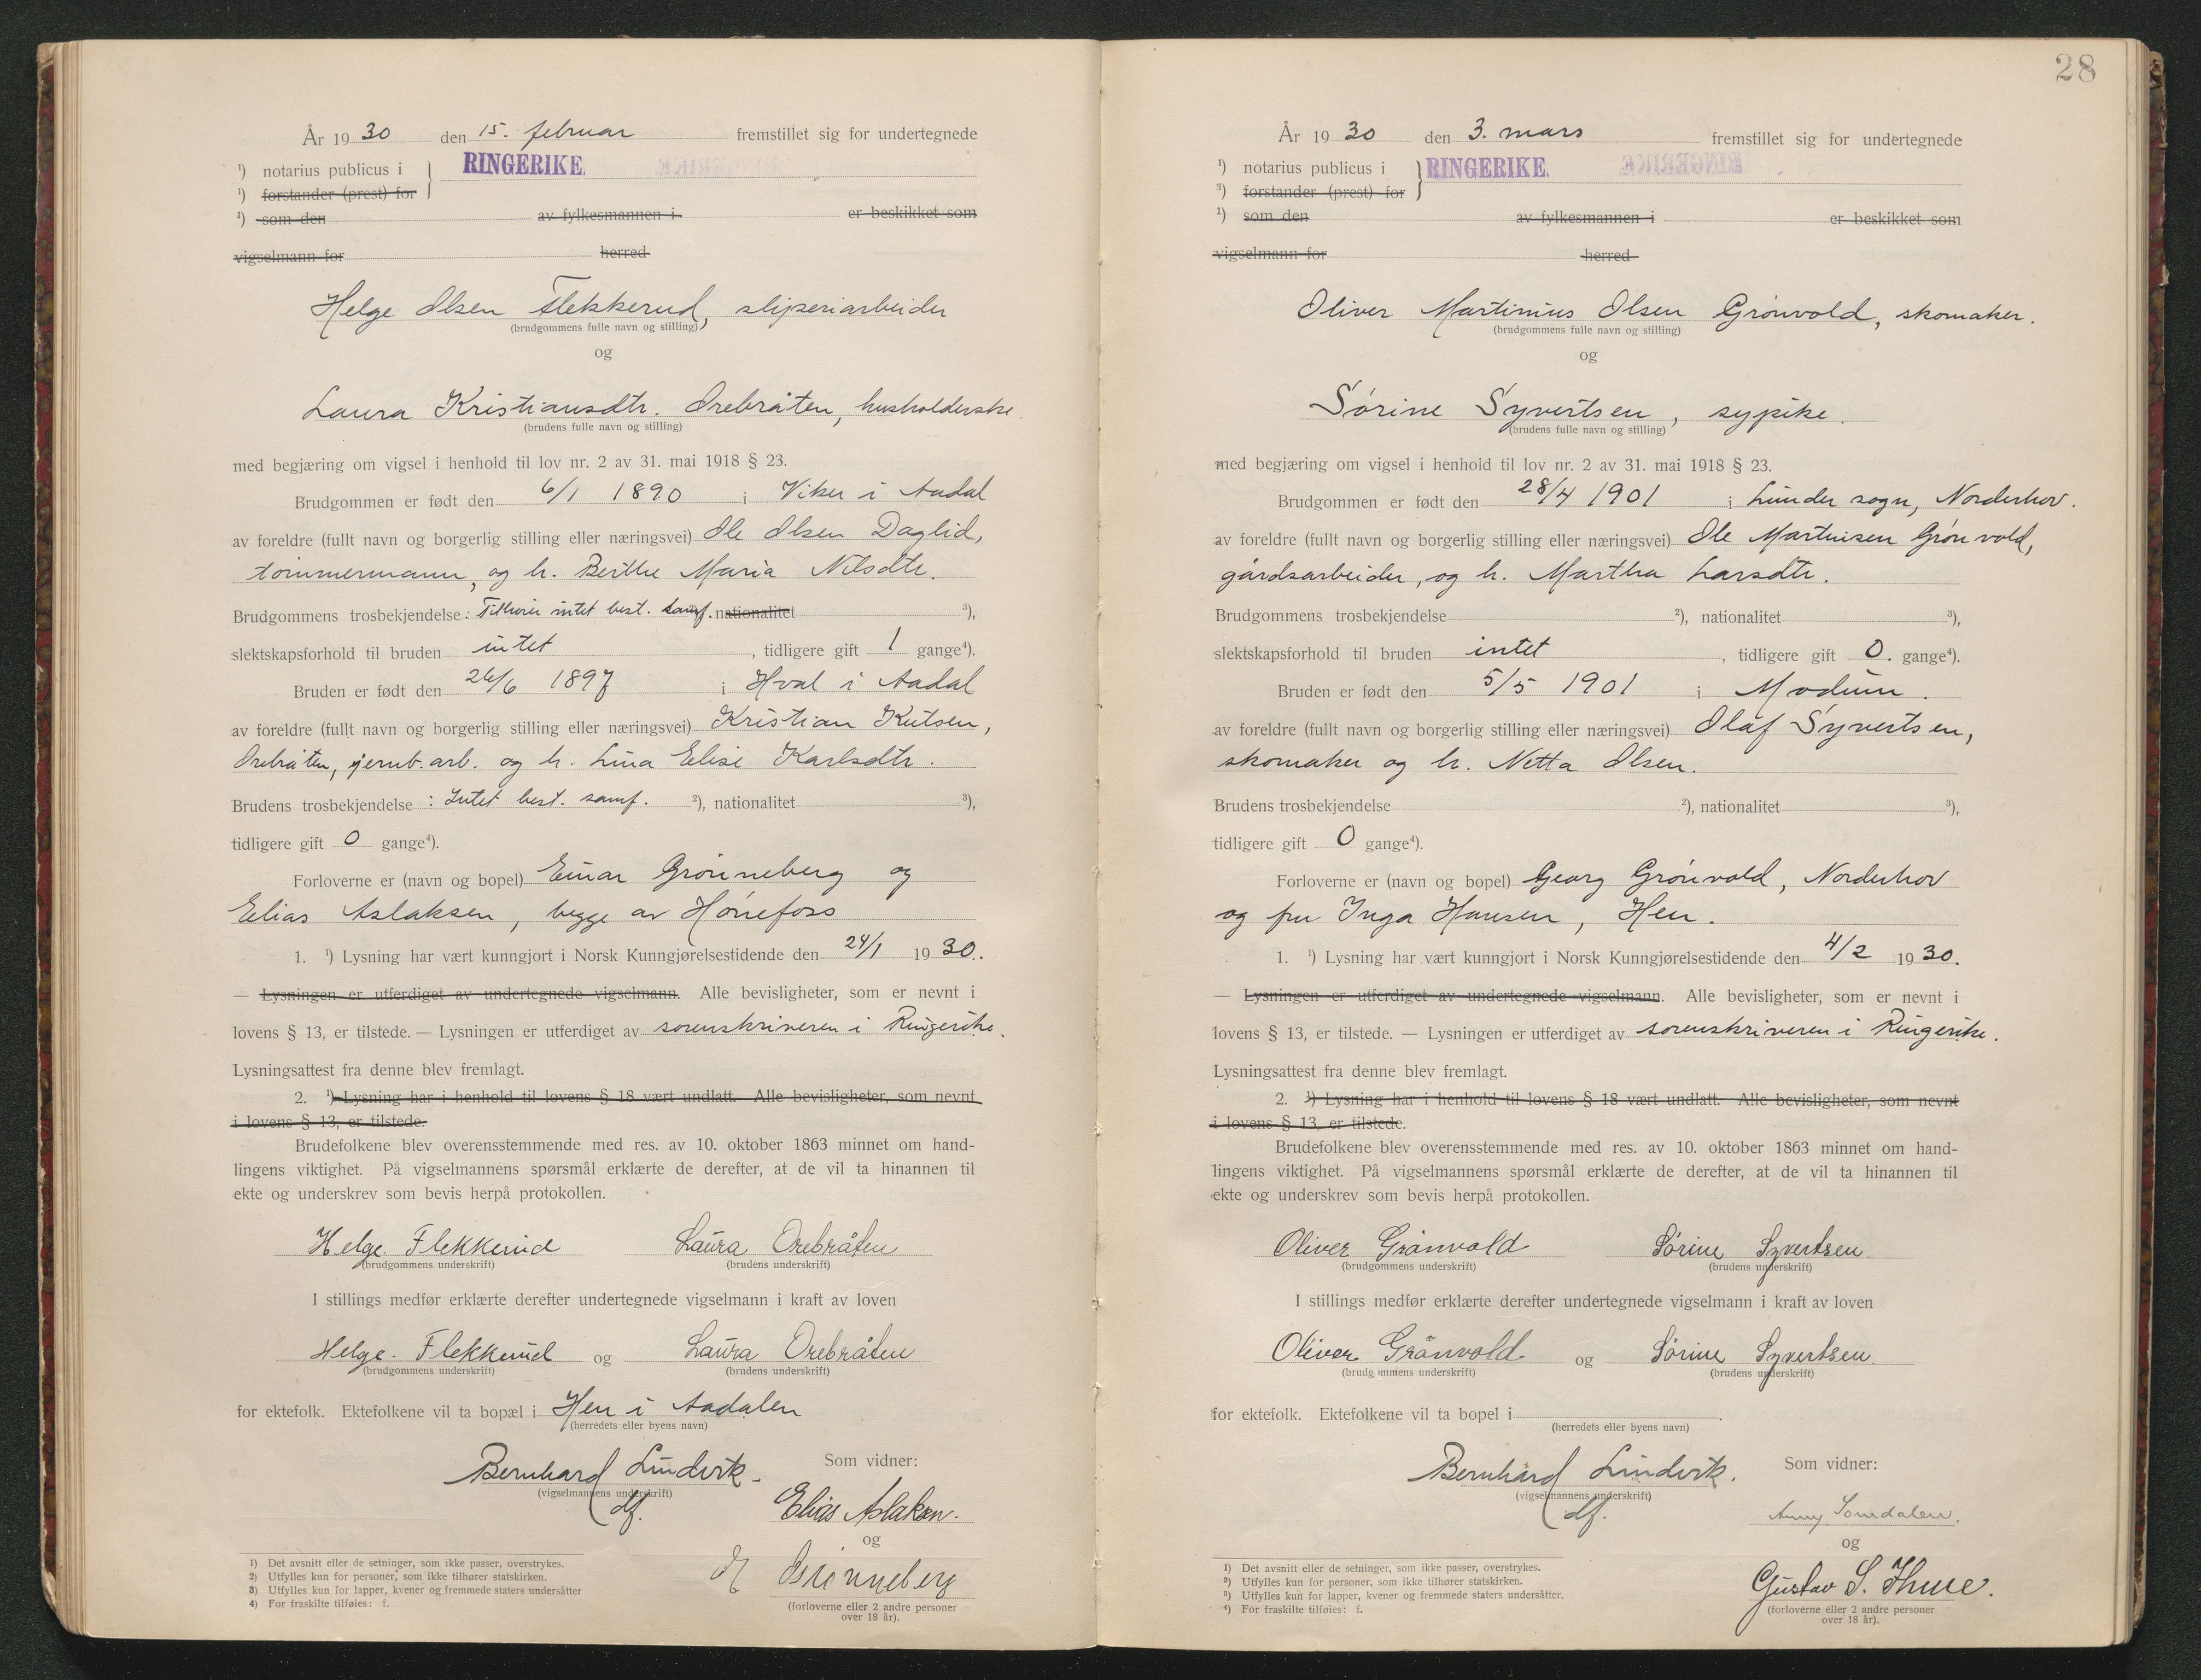 År 1930 den 15. februar fremstillet sig for undertegnede
¹) notarius publicus i } RINGERIKE.
¹) forstander (prest) for
¹) som den av fylkesmannen i er beskikket som
vigselmann for herred
Helge Olsen Flekkerud, sliperiarbeider
(brudgommens fulle navn og stilling)
og
Laura Kristiansdtr. Orebråten, husholderske
(brudens fulle navn og stilling)
med begjæring om vigsel i henhold til lov nr. 2 av 31. mai 1918 § 23.
Brudgommen er født den 6/1 1890 i Viker i Aadal
av foreldre (fullt navn og borgerlig stilling eller næringsvei) Ole Olsen Daglid,
tømmermann, og h. Berthe Maria Nilsdtr.
Brudgommens trosbekjendelse: Tilhører intet best. samf. nationalitet ³),
slektskapsforhold til bruden intet, tidligere gift 1 gange⁴).
Bruden er født den 26/6 1897 i Hval i Aadal
av foreldre (fullt navn og borgerlig stilling eller næringsvei) Kristian Kutsen,
Orebråten, jernb.arb. og h. Lina Elise Karlsdtr.
Brudens trosbekjendelse: Intet best. samf. ²), nationalitet ³),
tidligere gift 0 gange⁴).
Forloverne er (navn og bopel) Einar Grønneberg og
Elias Aslaksen, begge av Hønefoss
1. ¹) Lysning har vært kunngjort i Norsk Kunngjørelsestidende den 24/1 1930.
— Lysningen er utferdiget av undertegnede vigselmann. Alle bevisligheter, som er nevnt i
lovens § 13, er tilstede. — Lysningen er utferdiget av sorenskriveren i Ringerike.
Lysningsattest fra denne blev fremlagt.
2. ¹) Lysning har i henhold til lovens § 18 vært undlatt. Alle bevisligheter, som nevnt
i lovens § 13, er tilstede.
Brudefolkene blev overensstemmende med res. av 10. oktober 1863 minnet om hand-
lingens viktighet. På vigselmannens spørsmål erklærte de derefter, at de vil ta hinannen til
ekte og underskrev som bevis herpå protokollen.
Helge. Flekkerud Laura Orebråten
(brudgommens underskrift) (brudens underskrift)
I stillings medfør erklærte derefter undertegnede vigselmann i kraft av loven
Helge. Flekkerud og Laura Orebråten
(brudgommens underskrift) (brudens underskrift)
for ektefolk. Ektefolkene vil ta bopæl i Hen i Aadalen
(herredets eller byens navn)
Bernhard Lindvik. Som vidner:
(vigselmannens underskrift)
df. Elias Aslaksen.
og
E Grønneberg
(forloverne eller 2 andre personer
over 18 år).
1) Det avsnitt eller de setninger, som ikke passer, overstrykes.
2) Utfylles kun for personer, som ikke tilhører statskirken.
3) Utfylles kun for lapper, kvener og fremmede staters undersåtter
4) For fraskilte tilføies: f.
28
År 1930 den 3. mars fremstillet sig for undertegnede
¹) notarius publicus i } RINGERIKE.
¹) forstander (prest) for
¹) som den av fylkesmannen i er beskikket som
vigselmann for herred
Oliver Martinius Olsen Grønvold, skomaker.
(brudgommens fulle navn og stilling)
og
Sørine Syvertsen, sypike.
(brudens fulle navn og stilling)
med begjæring om vigsel i henhold til lov nr. 2 av 31. mai 1918 § 23.
Brudgommen er født den 28/4 1901 i Lunder sogn, Norderhov.
av foreldre (fullt navn og borgerlig stilling eller næringsvei) Ole Martinisen Grønvold,
gårdsarbeider, og h. Martha Larsdtr.
Brudgommens trosbekjendelse ²), nationalitet ³),
slektskapsforhold til bruden intet, tidligere gift 0. gange⁴).
Bruden er født den 5/5 1901 i Modum.
av foreldre (fullt navn og borgerlig stilling eller næringsvei) Olaf Syvertsen,
skomaker og h. Netta Olsen.
Brudens trosbekjendelse ²), nationalitet ³),
tidligere gift 0 gange⁴).
Forloverne er (navn og bopel) Georg Grønvold, Norderhov
og fru Inga Hansen, Hen.
1. ¹) Lysning har vært kunngjort i Norsk Kunngjørelsestidende den 4/2 1930.
— Lysningen er utferdiget av undertegnede vigselmann. Alle bevisligheter, som er nevnt i
lovens § 13, er tilstede. — Lysningen er utferdiget av sorenskriveren i Ringerike.
Lysningsattest fra denne blev fremlagt.
2. ¹) Lysning har i henhold til lovens § 18 vært undlatt. Alle bevisligheter, som nevnt
i lovens § 13, er tilstede.
Brudefolkene blev overensstemmende med res. av 10. oktober 1863 minnet om hand-
lingens viktighet. På vigselmannens spørsmål erklærte de derefter, at de vil ta hinannen til
ekte og underskrev som bevis herpå protokollen.
Oliver Grønvold Sørine Syvertsen
(brudgommens underskrift) (brudens underskrift)
I stillings medfør erklærte derefter undertegnede vigselmann i kraft av loven
Oliver Grønvold og Sørine Syvertsen.
(brudgommens underskrift) (brudens underskrift)
for ektefolk. Ektefolkene vil ta bopel i
(herredets eller byens navn)
Bernhard Lindvik. Som vidner:
(vigselmannens underskrift)
df. Anny Somdalen.
og
Gustav S. Thue.
(forloverne eller 2 andre personer
over 18 år).
1) Det avsnitt eller de setninger, som ikke passer, overstrykes.
2) Utfylles kun for personer, som ikke tilhører statskirken.
3) Utfylles kun for lapper, kvener og fremmede staters undersåtter.
4) For fraskilte tilføies: f.